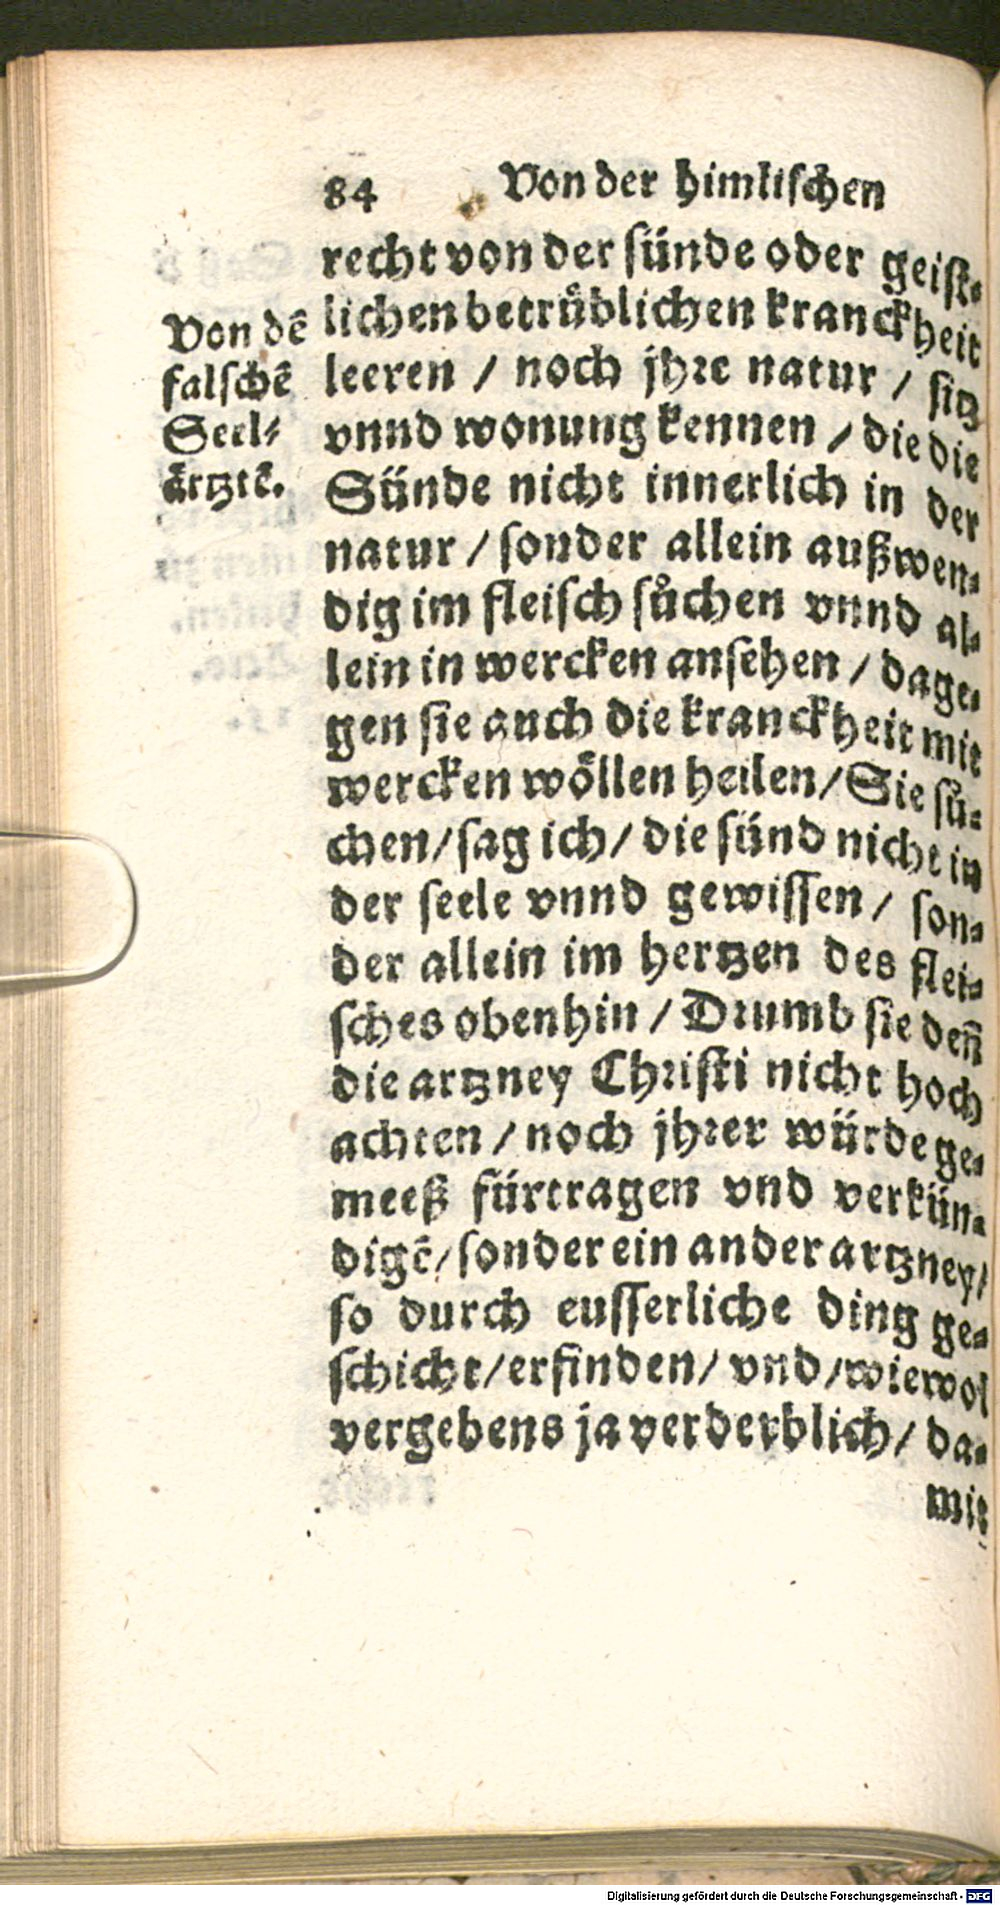 84 Von der himlischen
recht von der sünde oder geist-
lichen betrüblichen kranckheit
leeren / noch jhre natur / sitz
vnnd wonung kennen / die die
Sünde nicht innerlich in der
natur / sonder allein außwen-
dig im fleisch sůchen vnnd al-
lein in wercken ansehen / dage-
gen sie auch die kranckheit mit
wercken wöllen heilen / Sie sů-
chen / sag ich / die sünd nicht in
der seele vnnd gewissen / son-
der allein im hertzen des flei-
sches obenhin / Drumb sie deñ
die artzney Christi nicht hoch
achten / noch jhrer würde ge-
meeß fürtragen vnd verkün-
digē / sonder ein ander artzney /
so durch eusserliche ding ge-
schicht / erfinden / vnd / wiewol
vergebens ja verderblich / da-
mit
Von dē
falschē
Seel-
ärtztē.
Digitalisierung gefördert durch die Deutsche Forschungsgemeinschaft - DFG